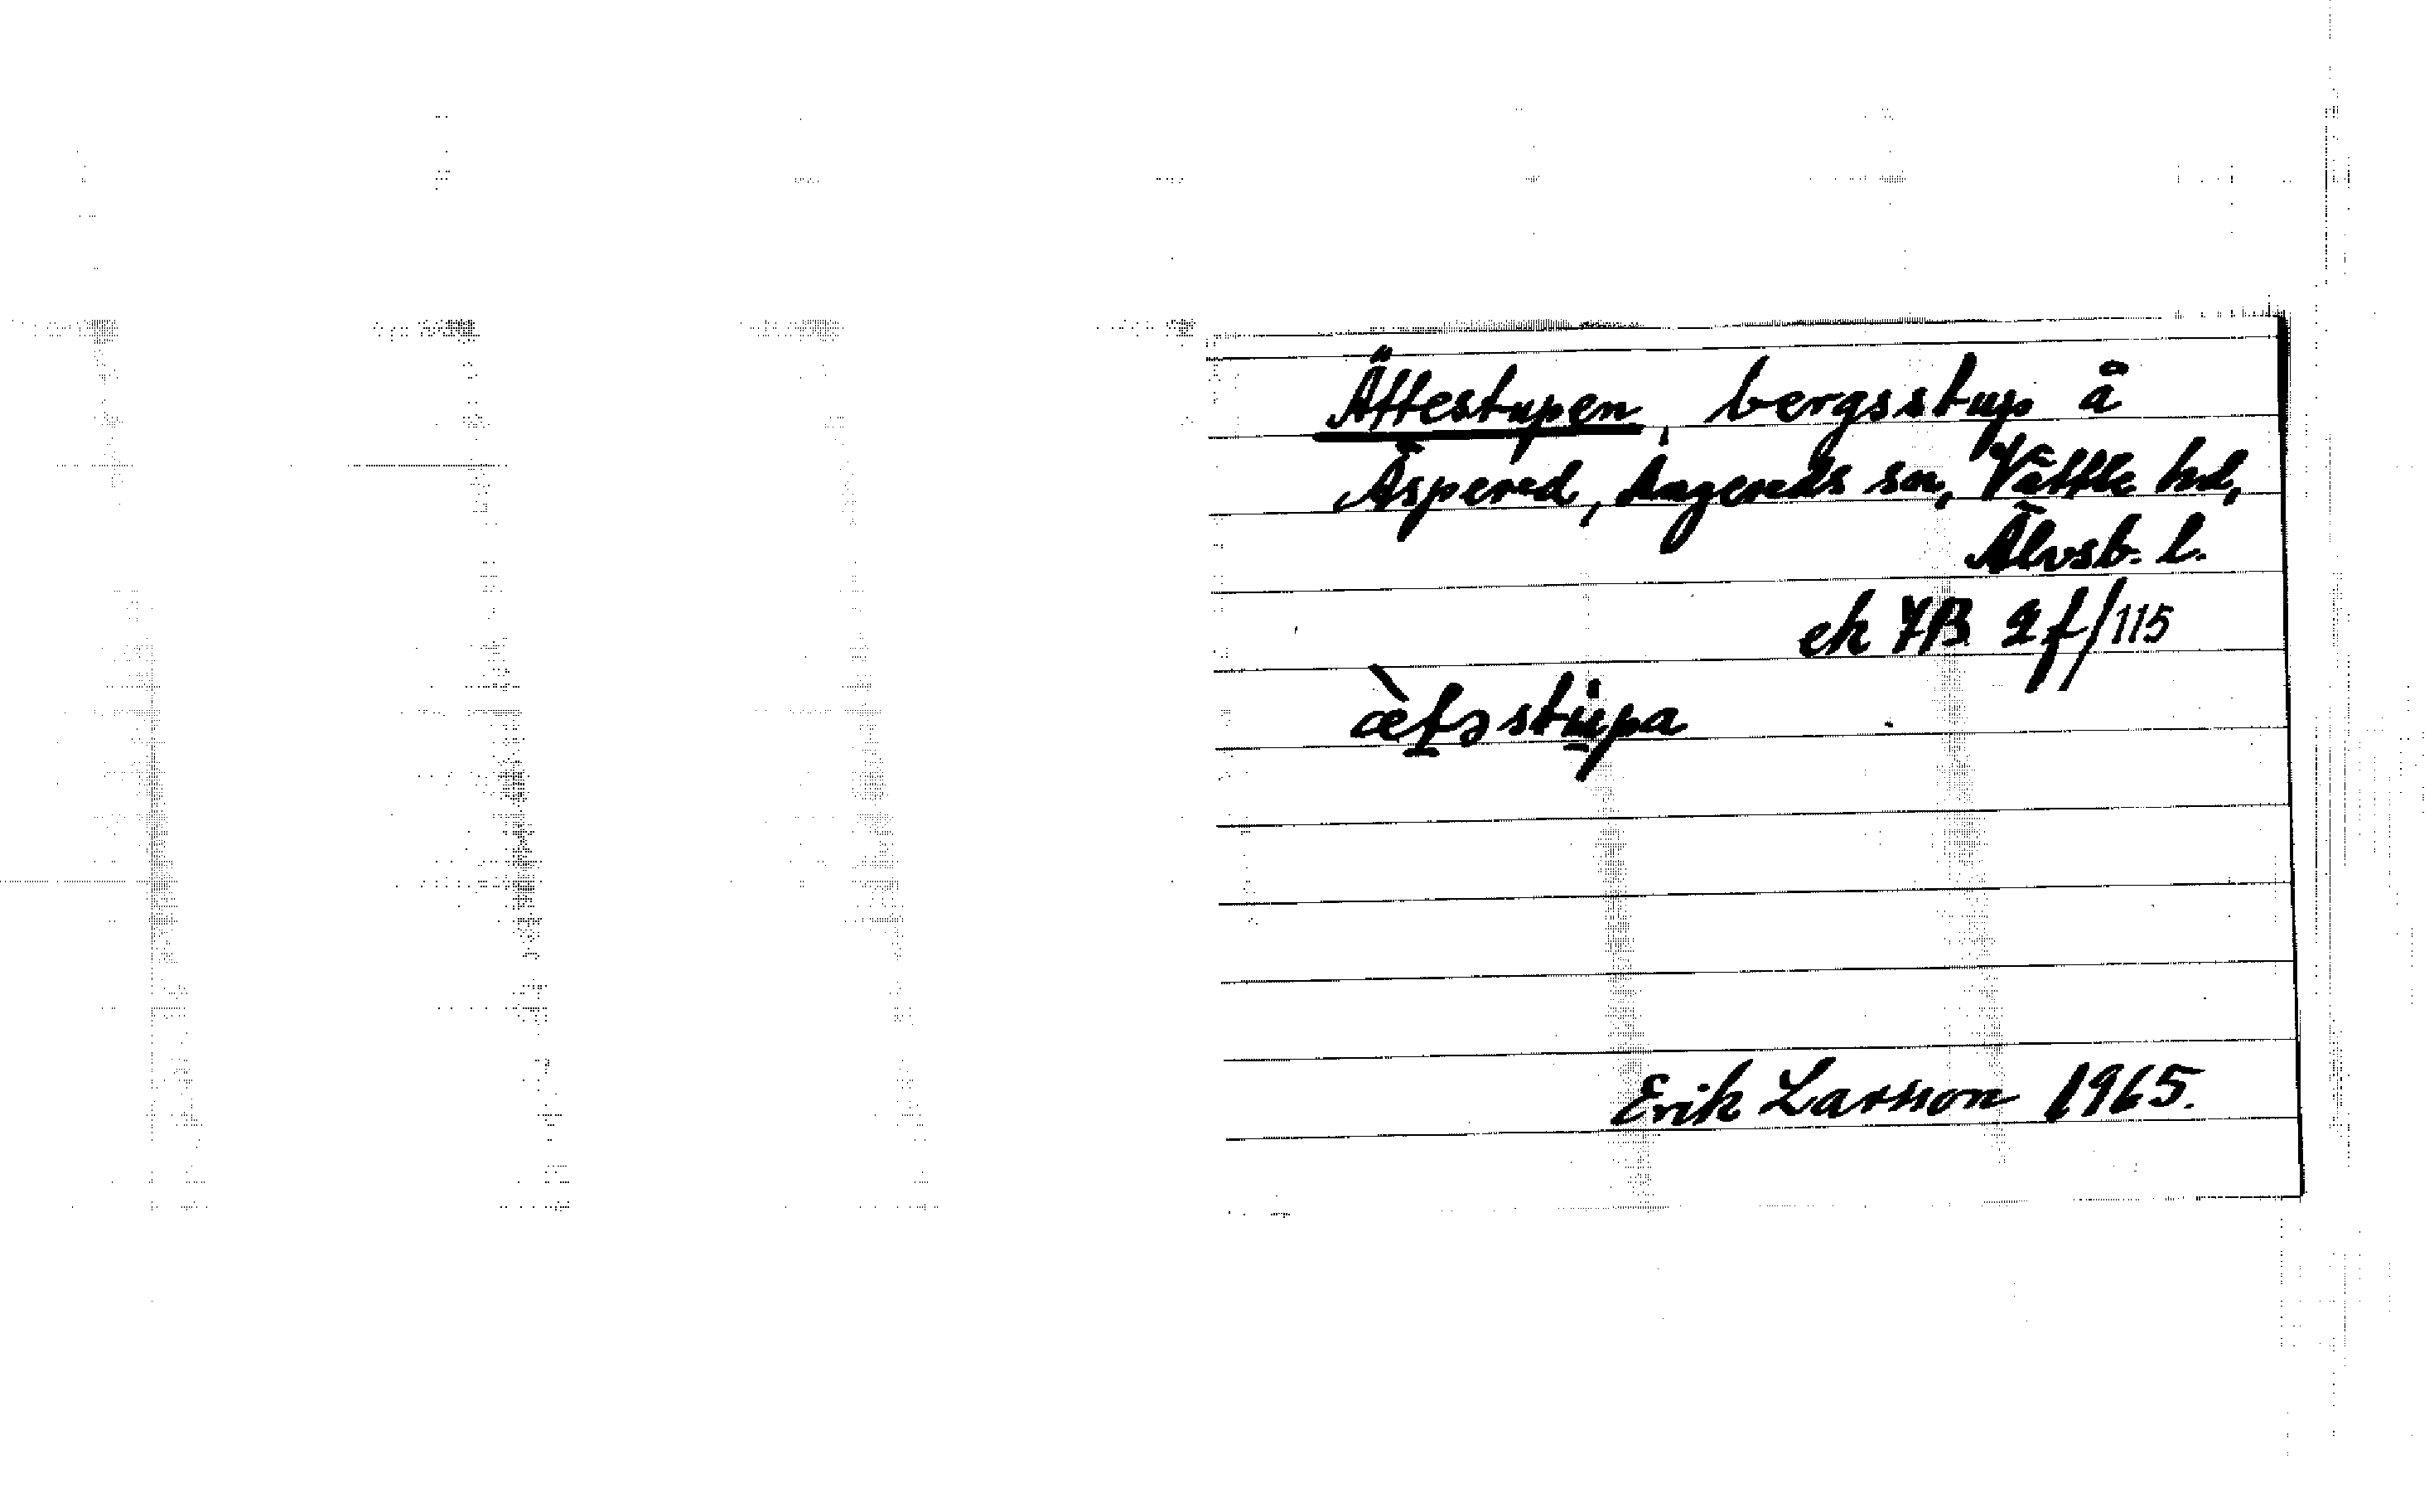 Ättestupen, bergsstup å
Äspered, Angereds sn, Vättle hd,
Älvsb. l.
ek 7B 2f/115
æ̀t̲ə stu̲pa
Erik Larsson 1965.